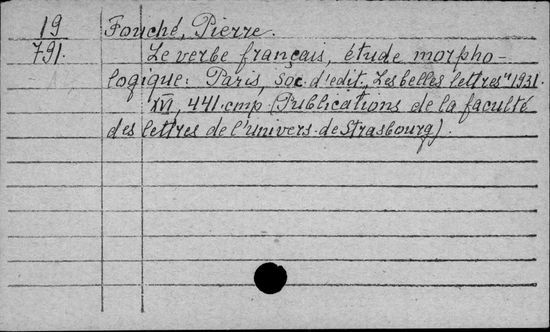 19 Fouché, Pierre.
791. Le verbe français, étude morpho-
logique. Paris, soc. d'edit. „Les belles lettres" 1931.
XVI, 441. cmp. (Publications de la faculté
des lettres de l'univers. de Strasbourg).